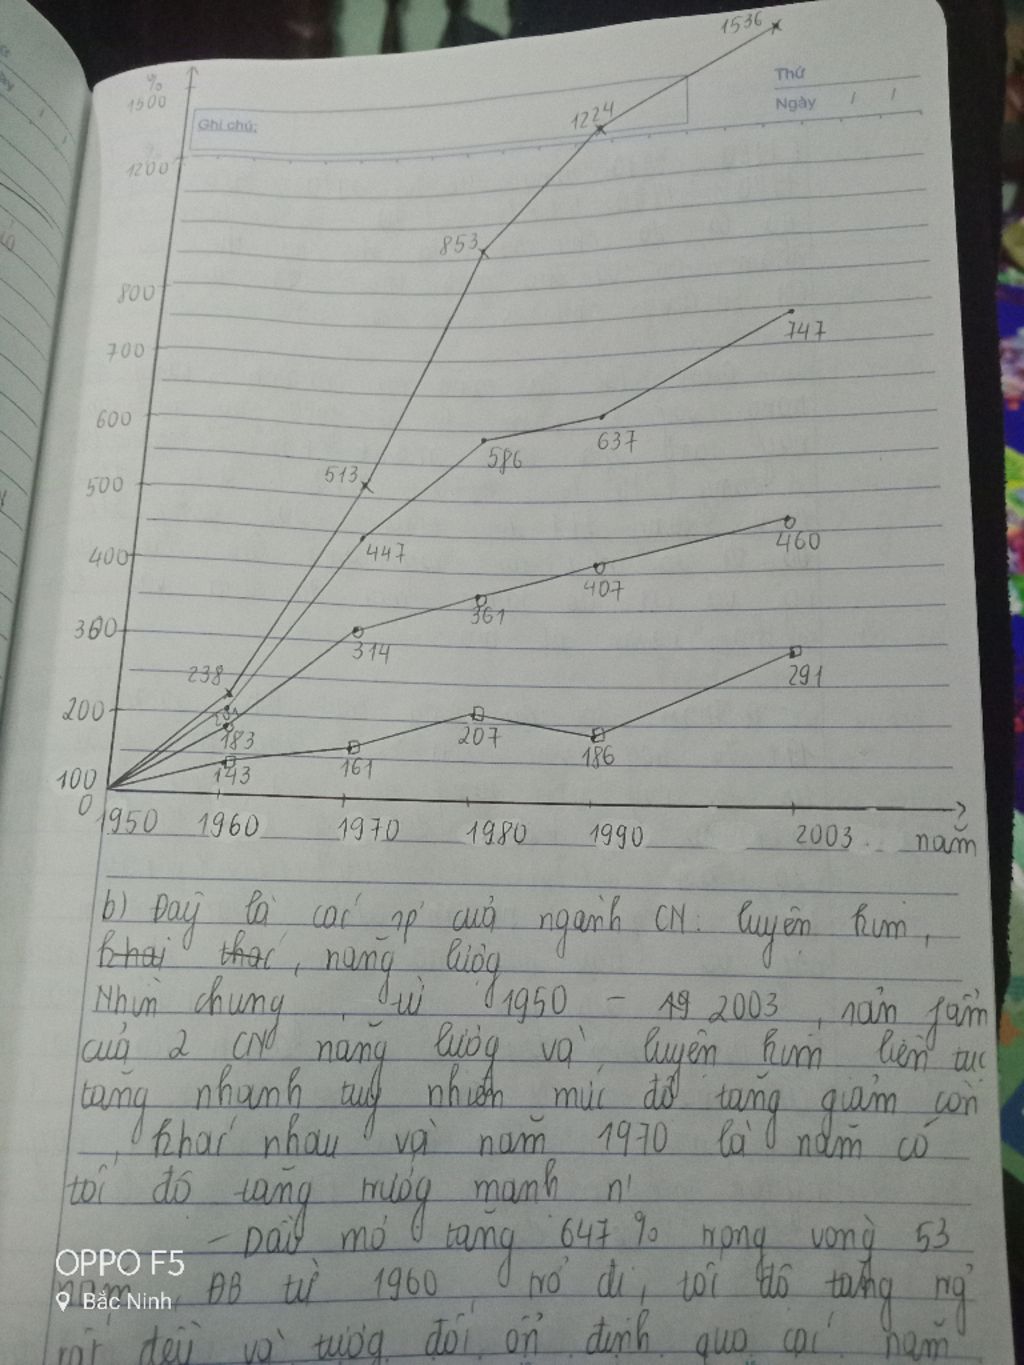 1536
%
1500
Thứ
Ngày / /
Ghi chú:
1224
1200
853
800
747
700
600
637
586
513
500
447
460
400
407
361
300
314
238
291
200
183
207
186
143
161
100
0
1950 1960 1970 1980 1990 2003 năm
b) Đây là các sp của ngành CN: luyện kim,
khai thác, năng lượg
Nhìn chung, từ 1950 - 19 2003, sản fẩm
của 2 CN năng lượg và luyện kim liên tục
tăng nhanh tuy nhiên mức độ tăng giảm còn
khác nhau và năm 1970 là năm có
tốc độ tăng trưởg mạnh n'
- Dầu mỏ tăng 647 % trog vòng 53
năm, ĐB từ 1960 trở đi, tốc độ tăng
rất đều và tươg đối ổn định qua các năm
OPPO F5
Bắc Ninh